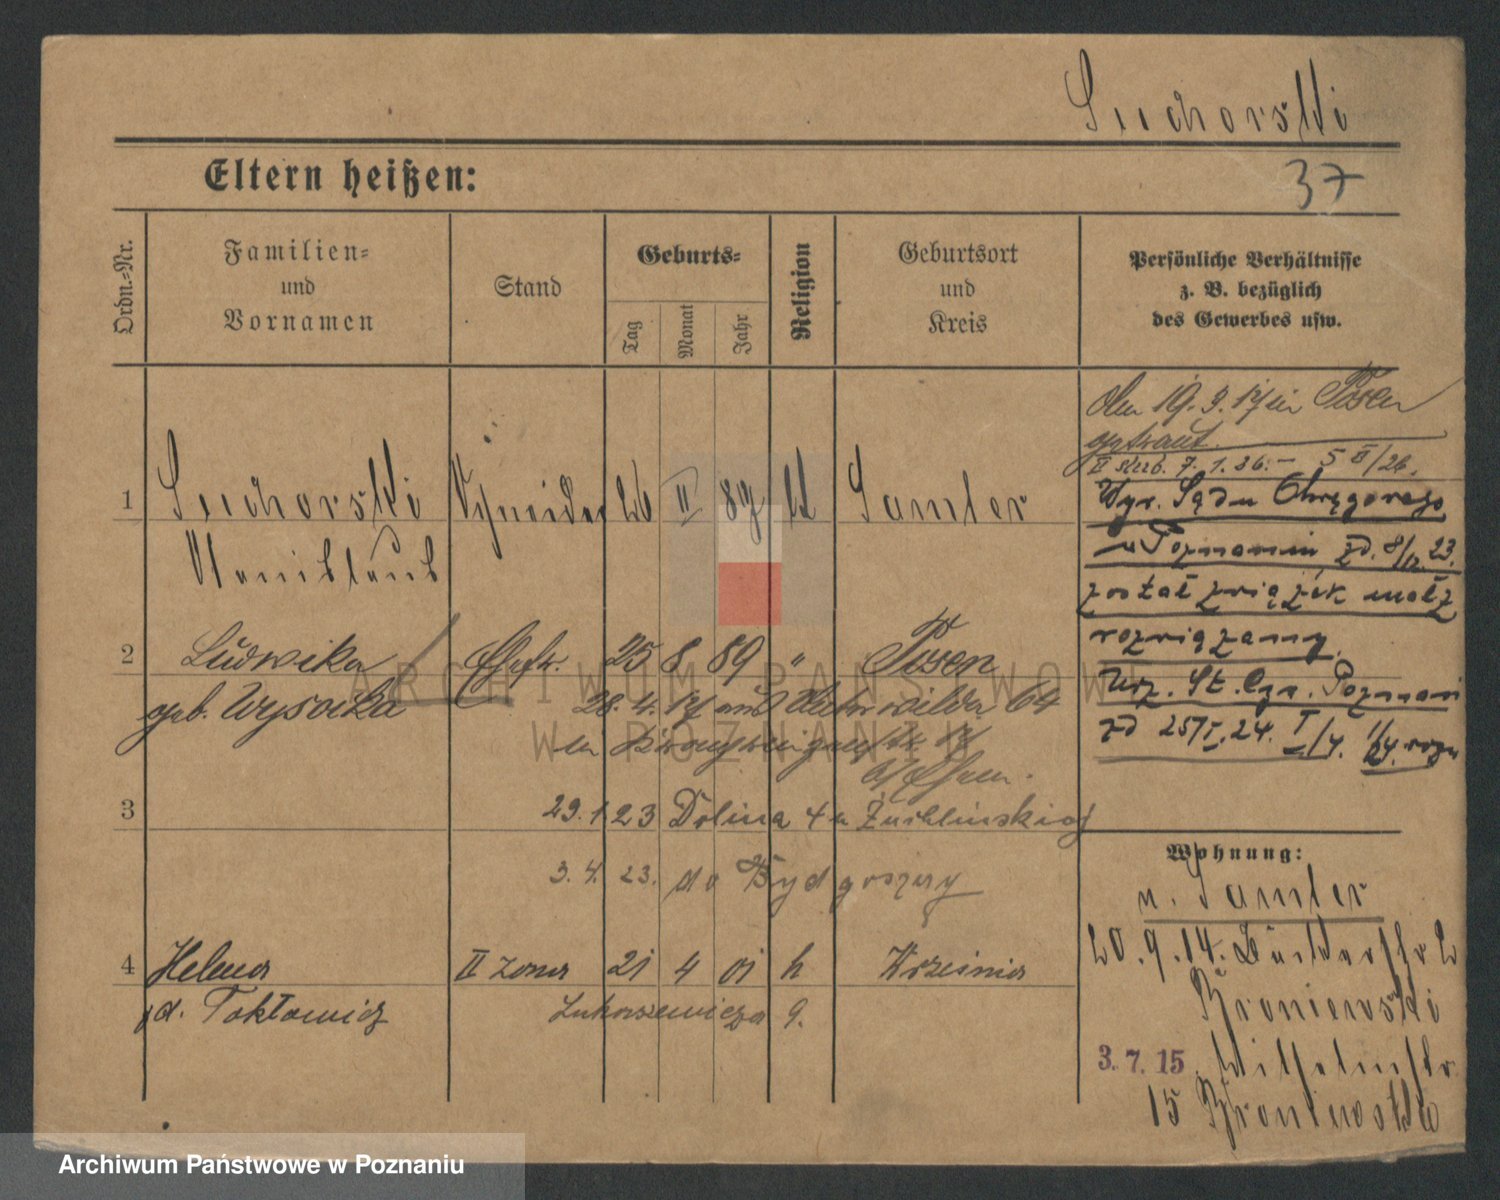 Suchorski
37
Eltern heißen:
Ordn.-Nr.
Familien-
und
Vornamen
Stand
Geburts-
Tag
Monat
Jahr
Religion
Geburtsort
und
Kreis
Persönliche Verhältnisse
z. B. bezüglich
des Gewerbes usw.
Den 19. 9. 17 in Posen
getraut.
7. 1. 26.
Wyr. Sądu Okręgowego
w Poznaniu zd. 8/12 23.
został związek małż
rozwiązany.
Urz. St. Cyw. Poznań
1 Suchorski Schneider 26 II 87 k Samter
Stanislaus
2 Ludwika Ehefr. 25 8 89 " Posen
geb. Wysocka
28. 4. 17 aus 64
3
29. 1. 23 Dolina 4 u Żuchlinskiej
3. 4. 23. do Bydgoszczy
4 Helena II żona 21 4 01 k Września
z d. Toktowicz
Lukaszewicza 9.
Wohnung:
v. Samter
20. 9. 14. Bäckerstr 2
Broniewski
3. 7. 15 Wilhelmstr.
15 Broniewska
ARCHIWUM PAŃSTWOWE
W POZNANIU
Archiwum Państwowe w Poznaniu